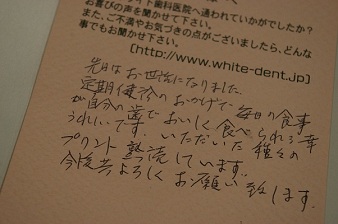 イト歯科医院へ通われていかがでしたか?
お喜びの声を聞かせて下さい。
また、ご不満やお気づきの点がございましたら、どんな
事でもお聞かせ下さい。
[http://www.white-dent.jp]
先日はお世話になりました。
定期健診のおかげで毎日の食事
が自分の歯でおいしく食べられる幸
うれしいです。いただいた種々の
プリント熟読しています。
今後共よろしくお願い致します。